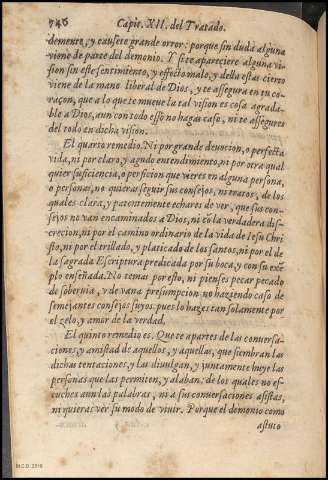 746 Capit. XII. del Tratado.
demente, y causete grande error: porque sin duda alguna
viene de parte del demonio. Y si te apareciere alguna vi-
sion sin este sentimiento, y effecto malo, y della estas cierto
viene de la mano liberal de Dios, y te assegura en tu co-
raçon, que a lo que te mueve la tal vision es cosa agrada-
ble a Dios, aun con todo esso no hagas caso, ni te assegures
del todo en dicha vision.
El quarto remedio. Ni por grande devocion, o perfecta
vida, ni por claro, y agudo entendimiento, ni por otra qual
quier suficiencia, o perficion que vieres en alguna persona,
o personas, no quieras seguir sus consejos, ni tratos, de los
quales clara, y patentemente echares de ver, que sus con-
sejos no van encaminados a Dios, ni cō la verdadera dis-
crecion, ni por el camino ordinario de la vida de Iesu Chri
sto, ni por el trillado, y platicado de los santos, ni por el de
la sagrada Escriptura predicada por su boca, y con su exē
plo enseñada. No temas por esto, ni pienses pecar pecado
de sobervia, y de vana presumpcion no haziendo caso de
semejantes consejos suyos, pues lo hazes tan solamente por
el zelo, y amor de la verdad.
El quinto remedio es. Que te apartes de las conversa-
ciones, y amistad de aquellos, y aquellas, que siembran las
dichas tentaciones, y las divulgan, y juntamente huye las
personas que las permiten, y alaban: de los quales no es-
cuches aun las palabras, ni a sus conversaciones assistas,
ni quieras ver su modo de vivir. Porque el demonio como
astuto
M.C.D. 2018